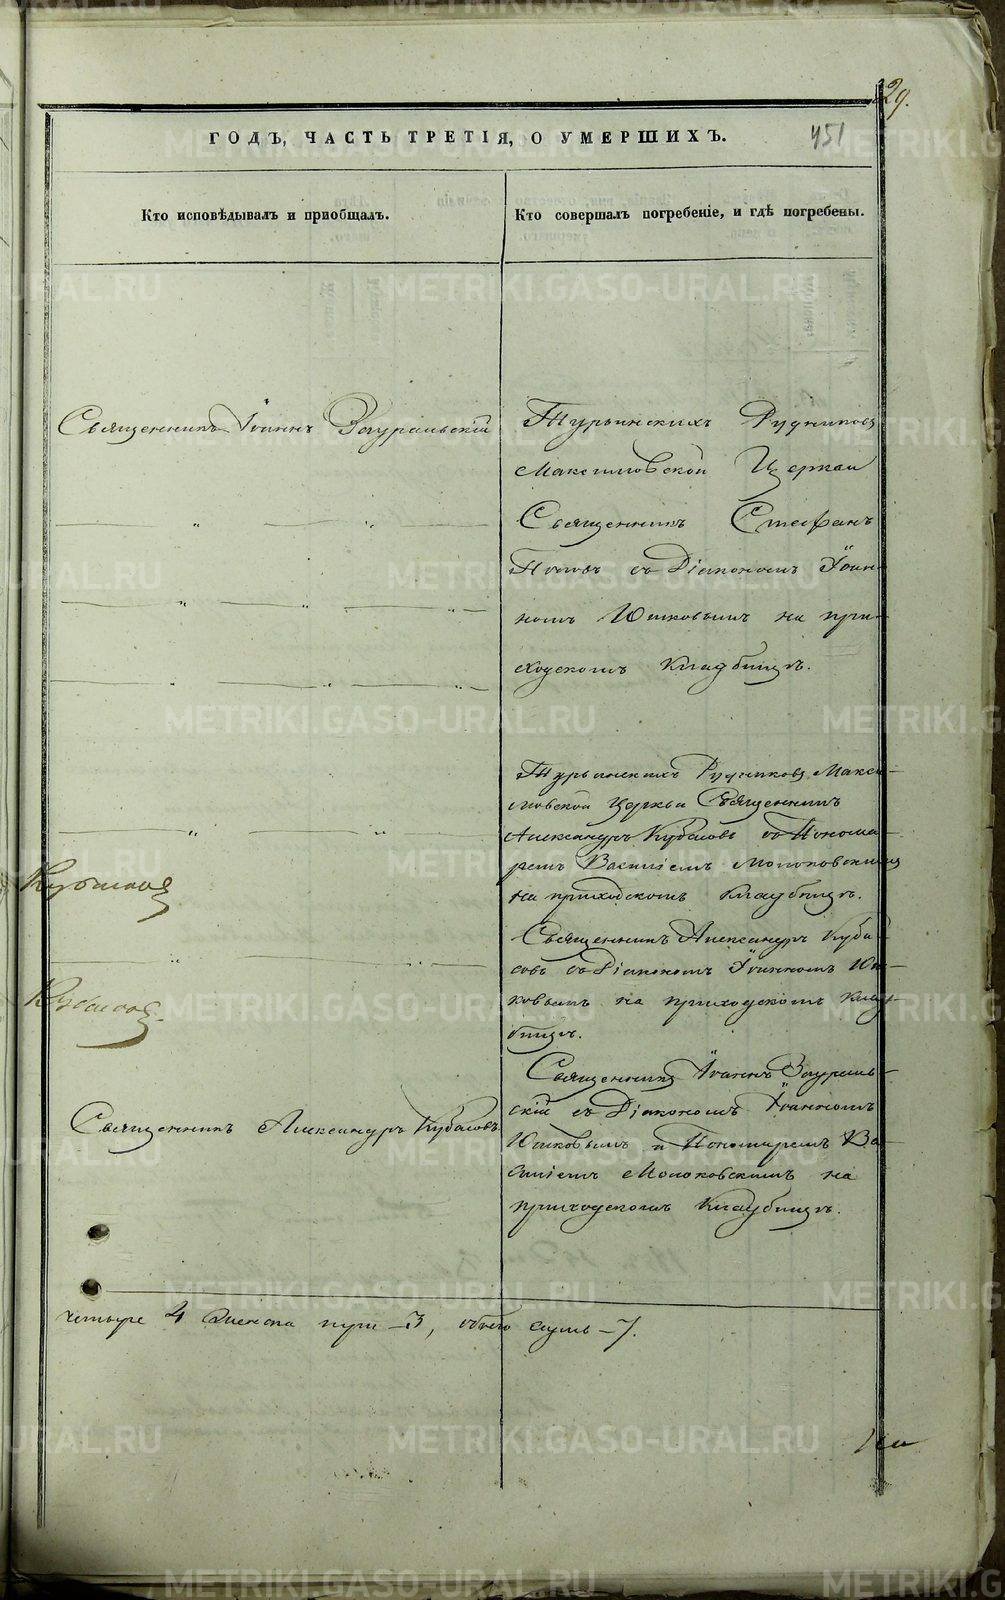 29.
ГОДЪ, ЧАСТЬ ТРЕТІЯ, О УМЕРШИХЪ.
451
Кто исповѣдывалъ и пріобщалъ.
Кто совершалъ погребеніе, и гдѣ погребены.
Священникъ Іоаннъ Зауральскій
Турьинскихъ Рудниковъ
Максимовской Церкви
Священникъ Стефанъ
Поповъ съ Діакономъ Іоан-
номъ Юшковымъ на при-
ходскомъ кладбищѣ.
Турьинскихъ Рудниковъ Макси-
мовской Церкви Священникъ
Александръ Кубасовъ съ Понома-
ремъ Василіемъ Молоковскимъ
на приходскомъ кладбищѣ.
Кубасовъ
Священникъ Александръ Куба-
совъ съ Діакономъ Іоанномъ Юш-
ковымъ на приходскомъ клад-
бищѣ.
Кубасовъ
Священникъ Іоаннъ Зураль-
скій съ Діакономъ Іоанномъ
Священникъ Александръ Кубасовъ
Юшковымъ и Пономаремъ Ва
силіемъ Молоковскимъ на
приходскомъ кладбищѣ.
четыре 4 женска три -3, обоего семь -7.
METRIKI.GASO-URAL.RU